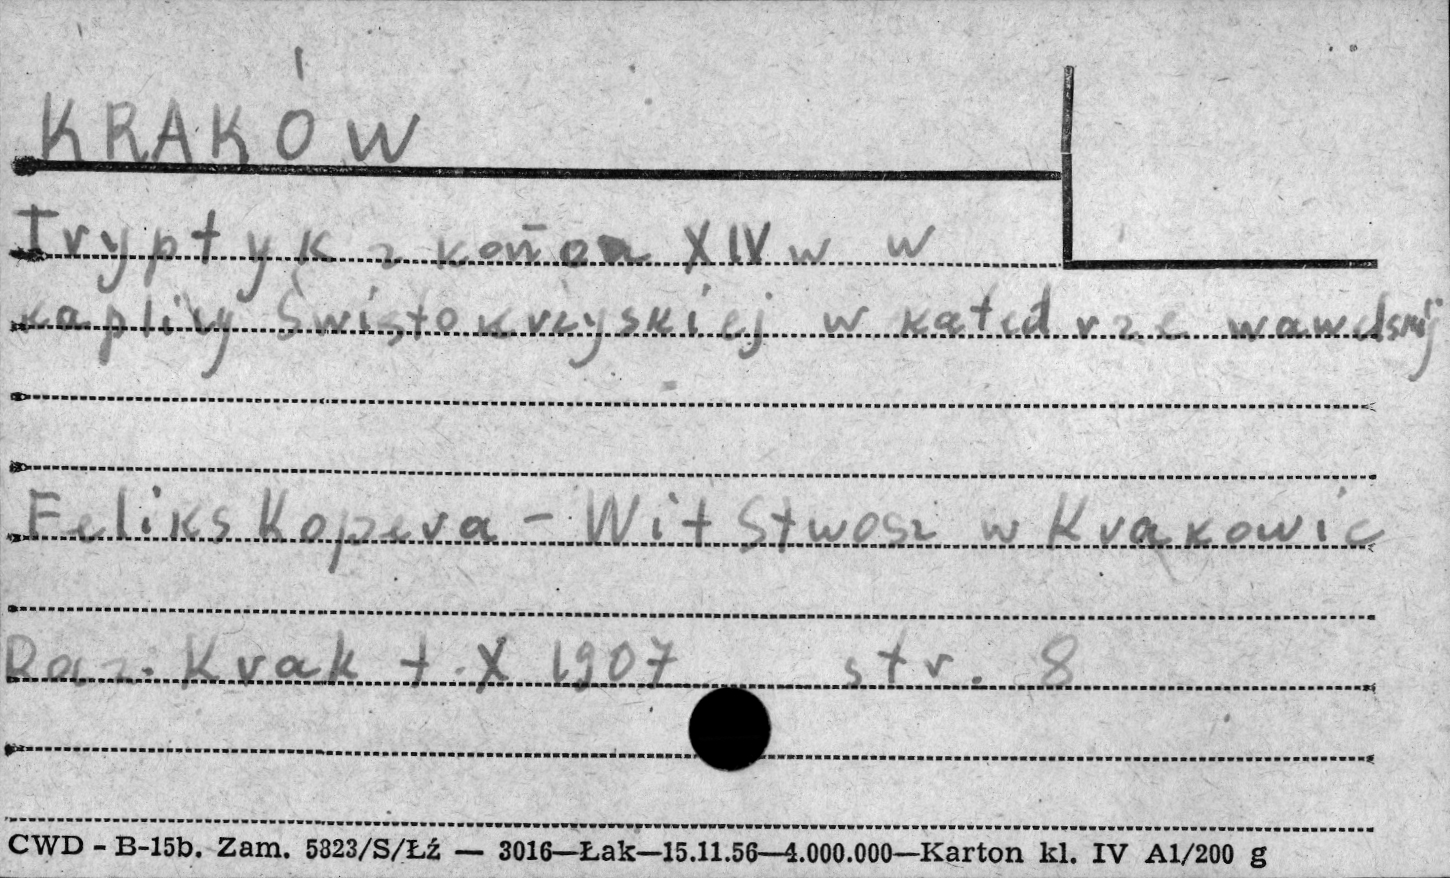 KRAKÓW
Tryptyk z końca XIV w w
kaplicy Świętokrzyskiej w katedrze wawelskiej
Feliks Kopera - Wit Stwosz w Krakowie
Rocz. Krak t. X 1907 str. 8
CWD - B-15b. Zam. 5823/S/Łź — 3016—Łak—15.11.56—4.000.000—Karton kl. IV A1/200 g